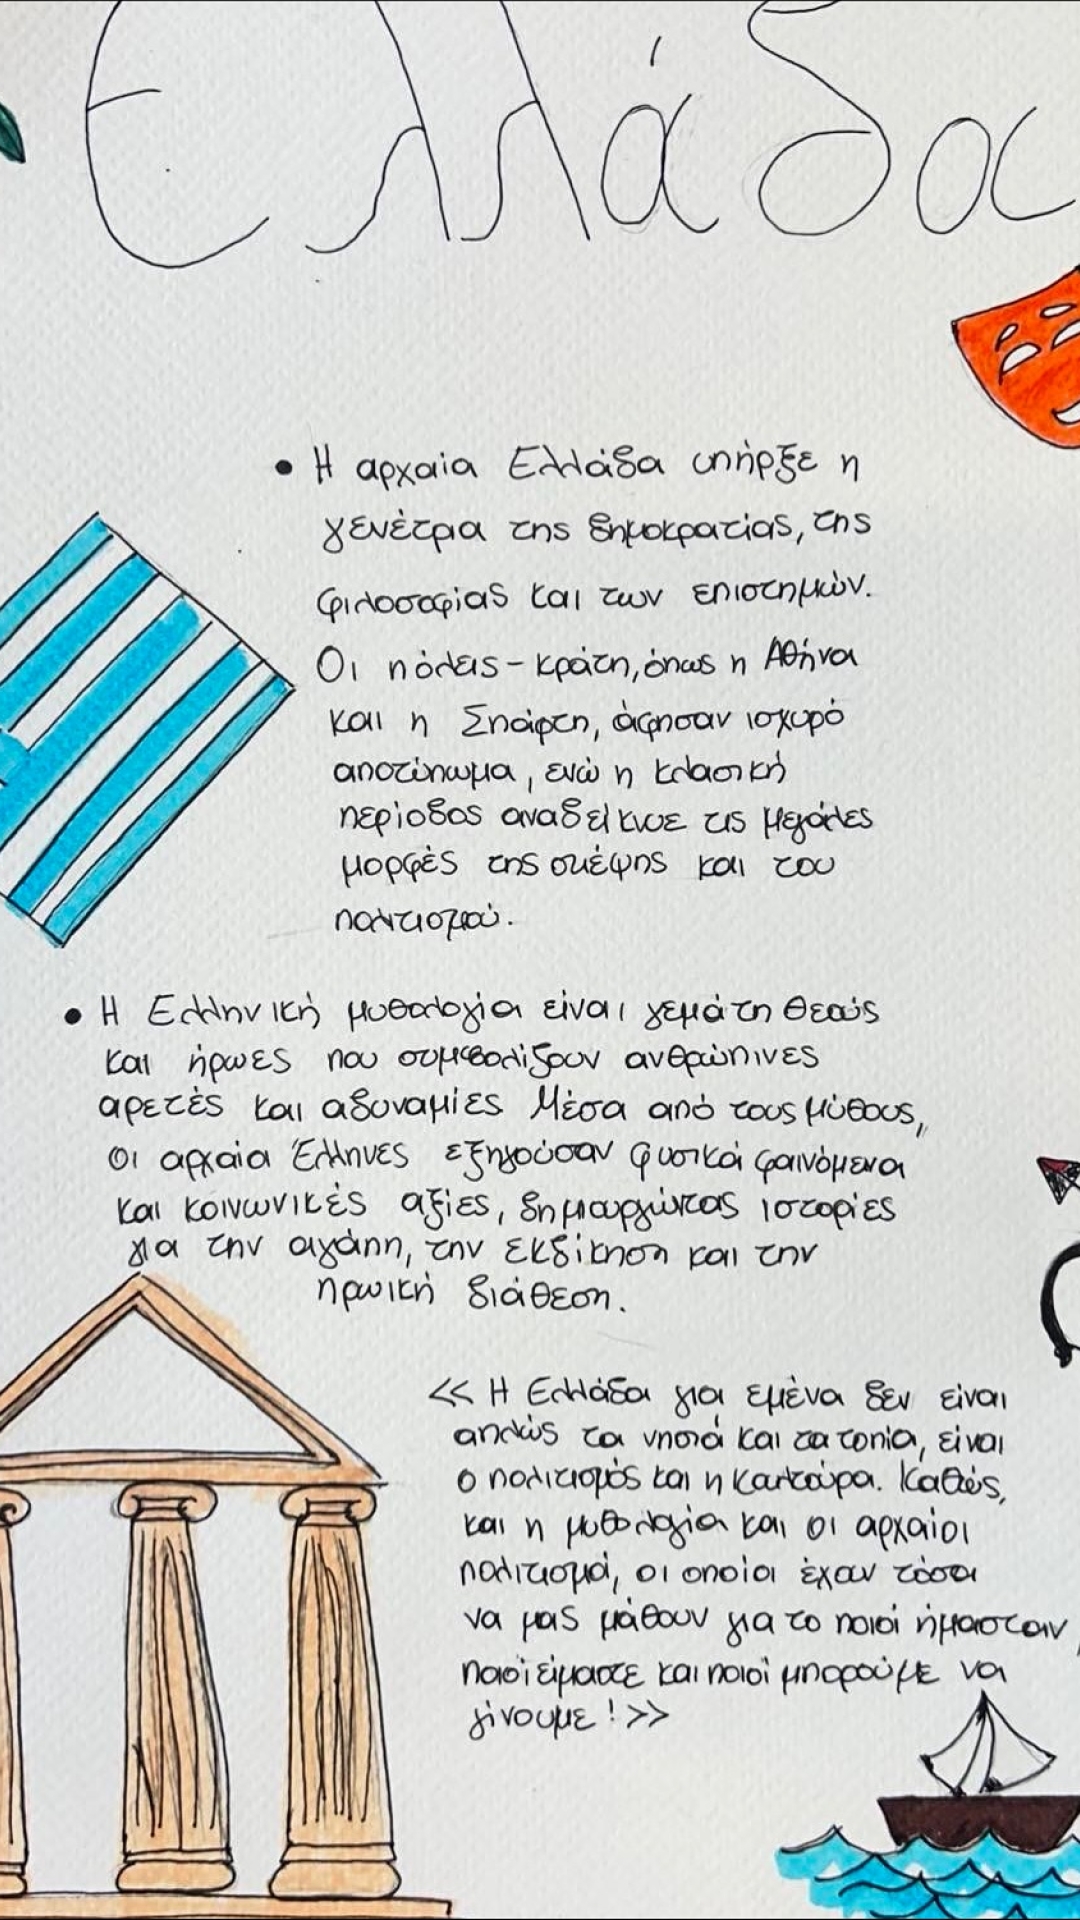 Ελλάδα
• Η αρχαία Ελλάδα υπήρξε η
γενέτρια της δημοκρατίας, της
φιλοσοφίας και των επιστημών.
Οι πόλεις-κράτη, όπως η Αθήνα
και η Σπάρτη, άφησαν ισχυρό
αποτύπωμα, ενώ η κλασική
περίοδος τις μεγάλες
μορφές της σκέψης και του
πολιτισμού.
• Η Ελληνική μυθολογία είναι γεμάτη θεούς
και ήρωες που συμβολίζουν ανθρώπινες
αρετές και αδυναμίες Μέσα από τους μύθους,
οι αρχαία Έλληνες εξηγούσαν φυσικά φαινόμενα
και κοινωνικές αξίες, δημιουργώντας ιστορίες
για την αγάπη, την εκδίκηση και την
ηρωική διάθεση.
<< Η Ελλάδα για εμένα δεν είναι
απλώς τα νησιά και τα τοπία, είναι
ο πολιτισμός και η κουλτούρα. Καθώς,
και η μυθολογία και οι αρχαίοι
πολιτισμοί, οι οποίοι έχουν τόσα
να μας μάθουν για το ποιοί ήμασταν,
ποιοί είμαστε και ποιοί μπορούμε να
γίνουμε! >>